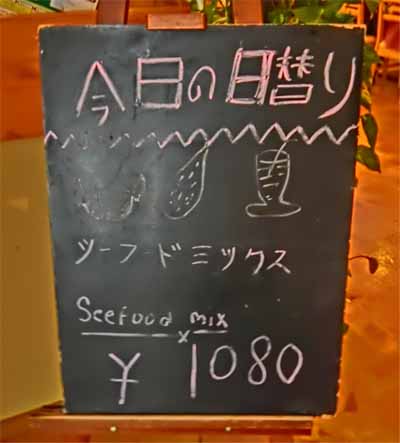 今日の日替り
シーフードミックス
Seefood mix
¥1080